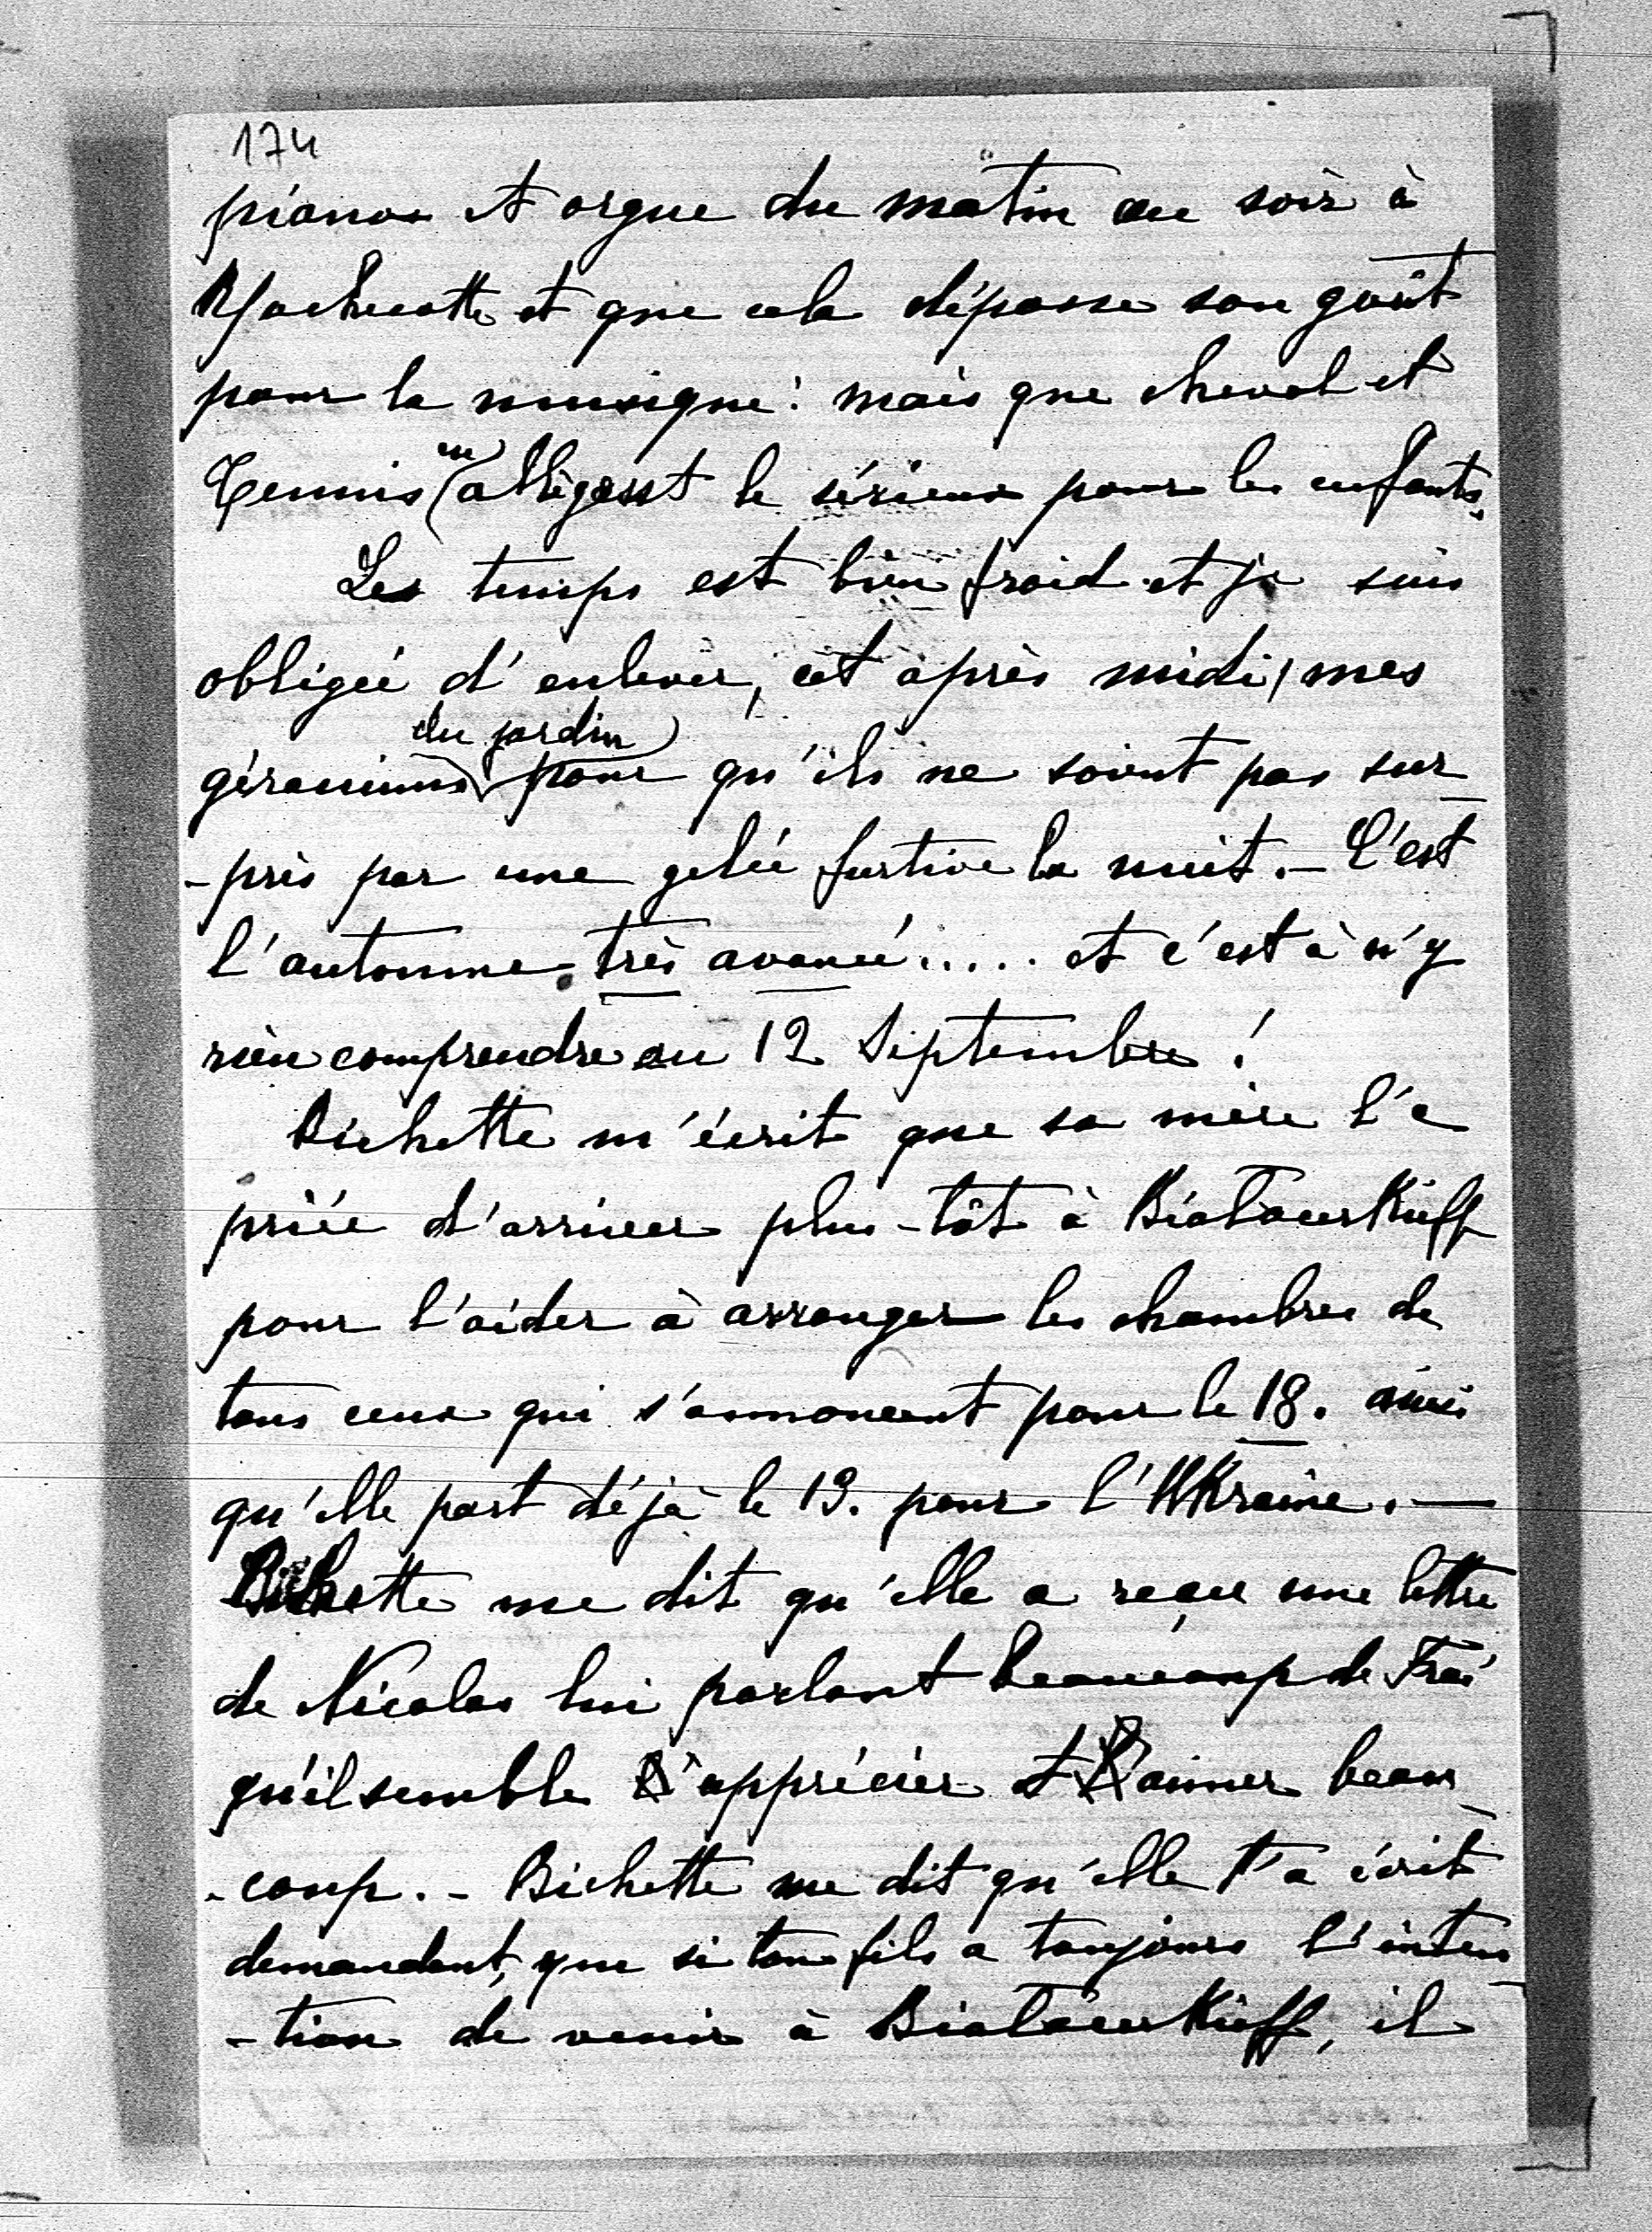 174
pianos et orgue du matin au soir à
et que cela dépasse son goût
pour la musique: mais que cheval et
Tennis en allègent le sérieux pour les enfants.
Les temps est bien froid et je suis
obligée d'enlever, cet après midi, mes
géraniums du jardin pour qu'ils ne soient pas sur
-pris par une gelée furtive la nuit. - C'est
l'automne très avancé..... et c'est à n'y
rien comprendre au 12 Septembre!
Bichette m'écrit que sa mère l'a
priée d'arriver plus-tôt à Białacerkieff
pour l'aider à arranger les chambres de
tous ceux qui s'annoncent pour le 18. ainsi
qu'elle part déjà le 13. pour l'Ukraine. -
Bichette me dit qu'elle a reçu une lettre
de Nicolas lui parlant beaucoup de
qu'il semble apprécier et aimer beau
-coup. - Bichette me dit qu'elle t'a écrit
demandant, que si ton fils a toujours l'inten
-tion de venir à Białacerkieff, il